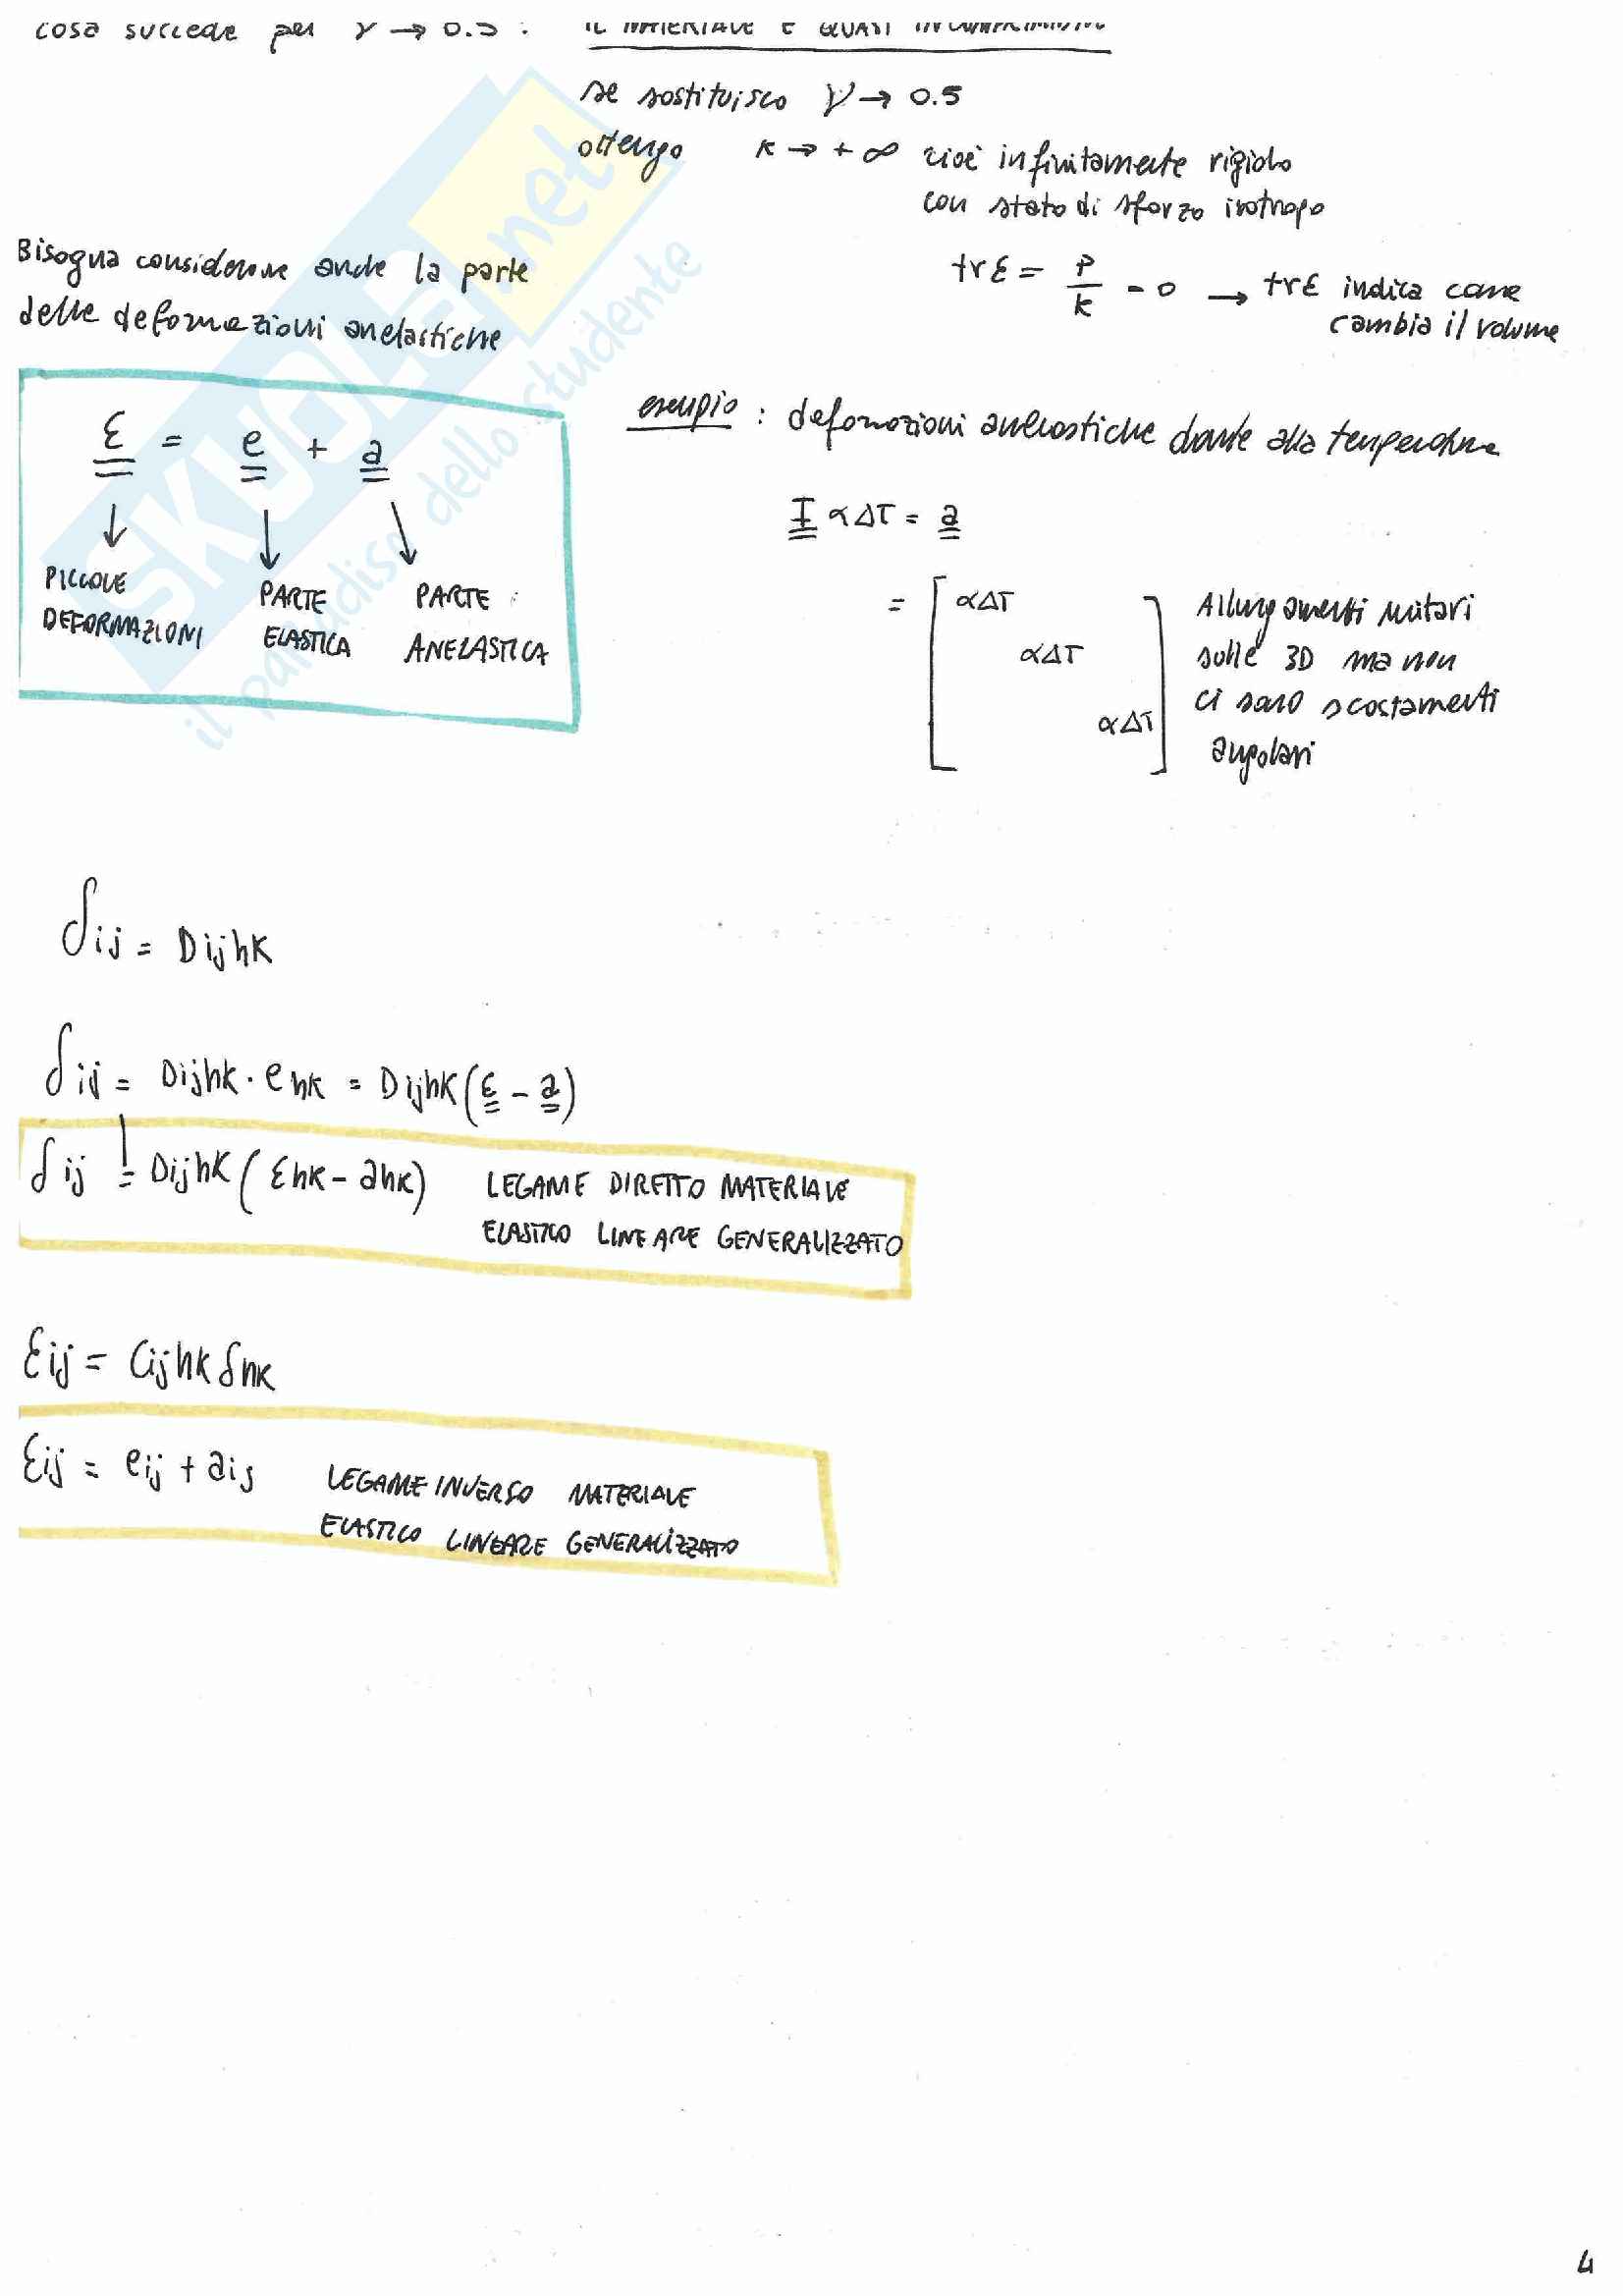 cosa succede per γ → 0.5 : IL MATERIALE È QUASI INCOMPRIMIBILE
se sostituisco γ → 0.5
ottengo K → + ∞ cioè infinitamente rigido
con stato di sforzo isotropo
tr ε = P/K = 0 → tr ε indica come
cambia il volume
Bisogna considerare anche la parte
delle deformazioni anelastiche
ε = e + a
PICCOLE DEFORMAZIONI
PARTE ELASTICA
PARTE ANELASTICA
esempio : deformazioni anelastiche dovute alla temperatura
I α ΔT = a
= [ αΔT
αΔT
αΔT ]
Allungamenti unitari
sulle 3D ma non
ci sono scostamenti
angolari
δij = Dijhk
δij = Dijhk · ehk = Dijhk (ε - a)
δij = Dijhk ( εhk - ahk) LEGAME DIRETTO MATERIALE
ELASTICO LINEARE GENERALIZZATO
εij = Cijhk δhk
εij = eij + aij LEGAME INVERSO MATERIALE
ELASTICO LINEARE GENERALIZZATO
4
SKUOLA.net
il paradiso dello studente